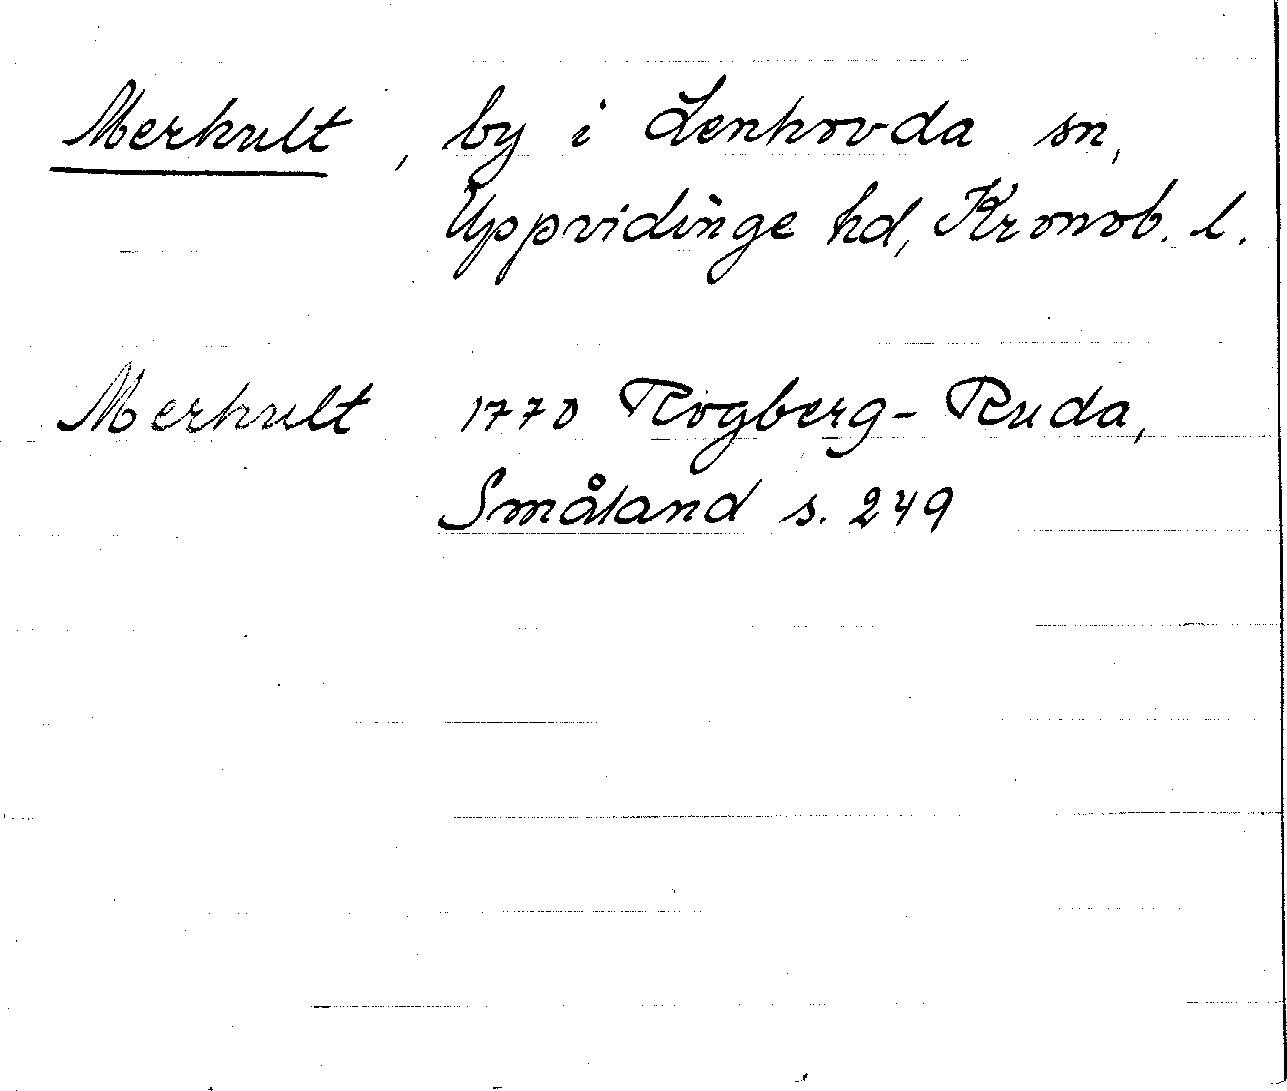 Merkult, by i Lenhovda sn,
Uppvidinge hd, Kronob. l.
Merkult 1770 Rogberg-Ruda,
Småland s. 249